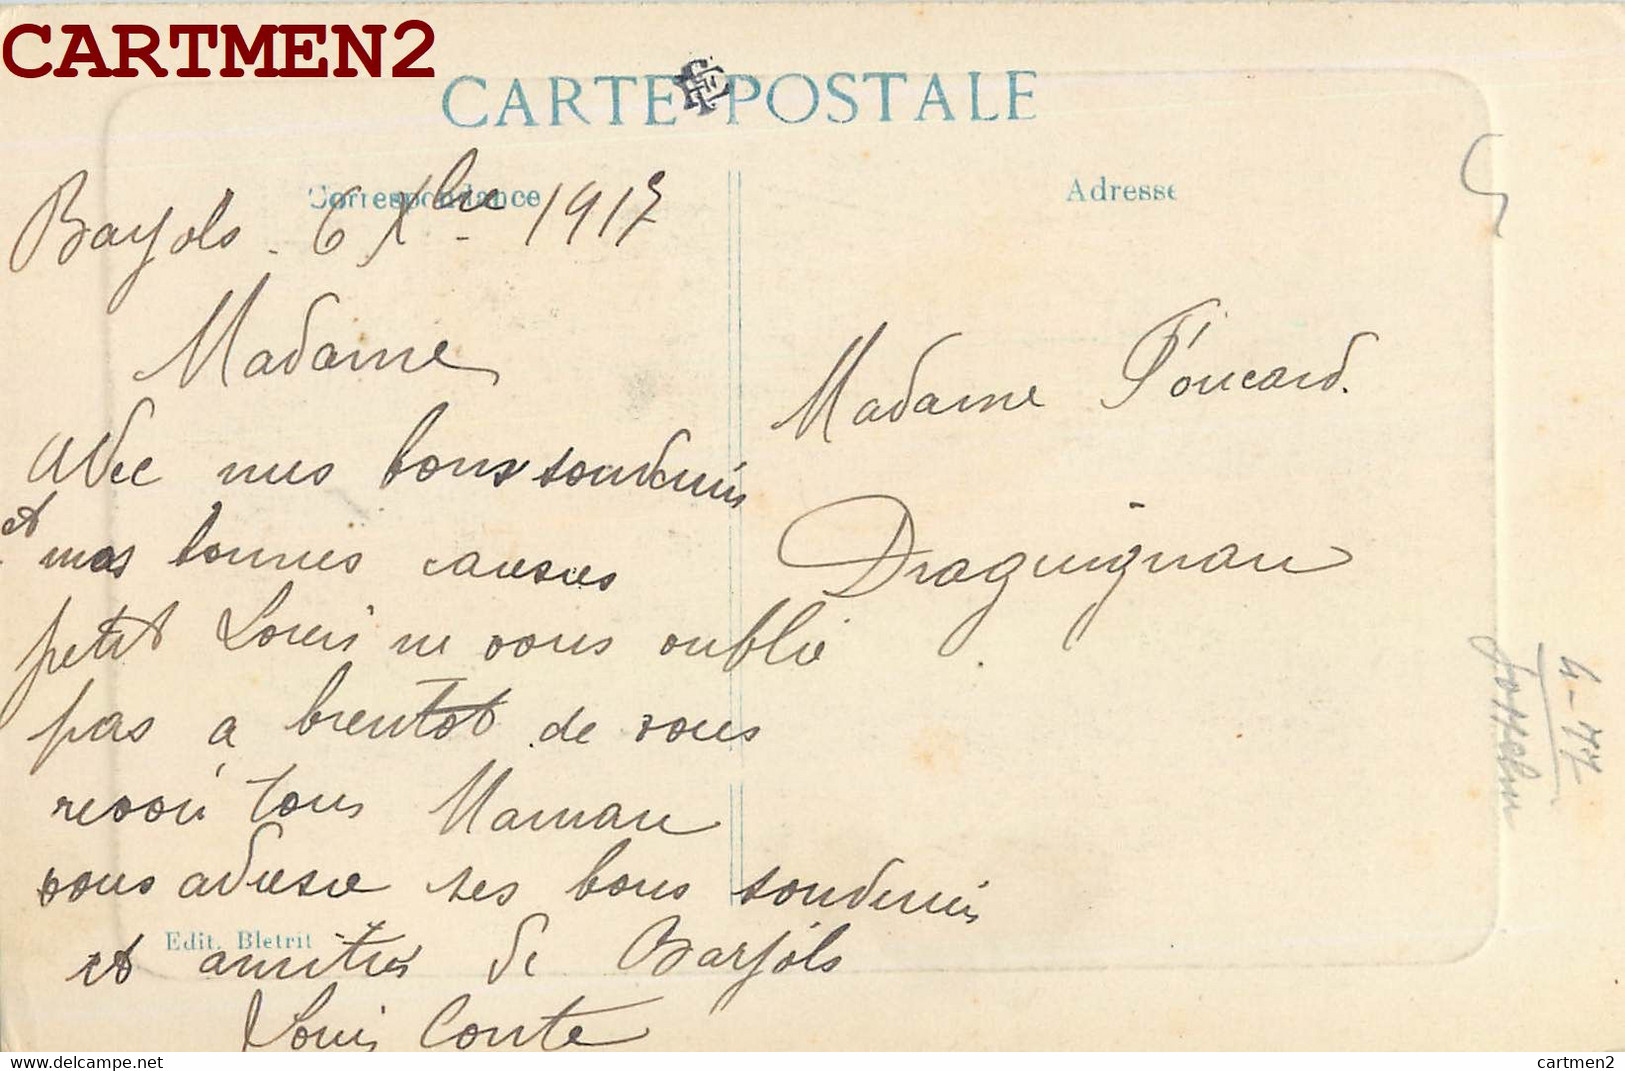 CARTMEN2
CARTE POSTALE
Correspondance
Adresse
Barjols. 6 Xbre 1917
Madame
avec mes bons souvenirs
et mes bonnes causeries
petit Louis ne vous oublie
pas a bientot de vous
revoir tous Maman
vous adresse ses bons souvenirs
et amitiés de Barjols
Louis Conte
Edit. Bletrit
Madame Foucard.
Draguignan
4-77
cartmen2.delcampe.net
cartmen2